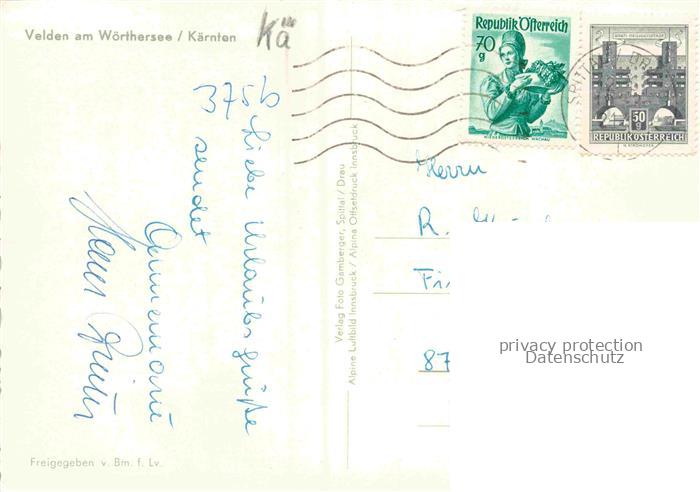 Velden am Wörthersee / Kärnten
Kä
375b
Liebe Urlaubsgrüße
sendet
Annemarie
Verlag Foto Gamberger, Spittal / Drau
Alpine Luftbild Innsbruck / Alpina Offsetdruck Innsbruck
Republik Österreich
70
g
50
g
REPUBLIK ÖSTERREICH
SPITTAL
Herrn
R.
Fi
87
privacy protection
Datenschutz
Freigegeben v. Bm. f. Lv.